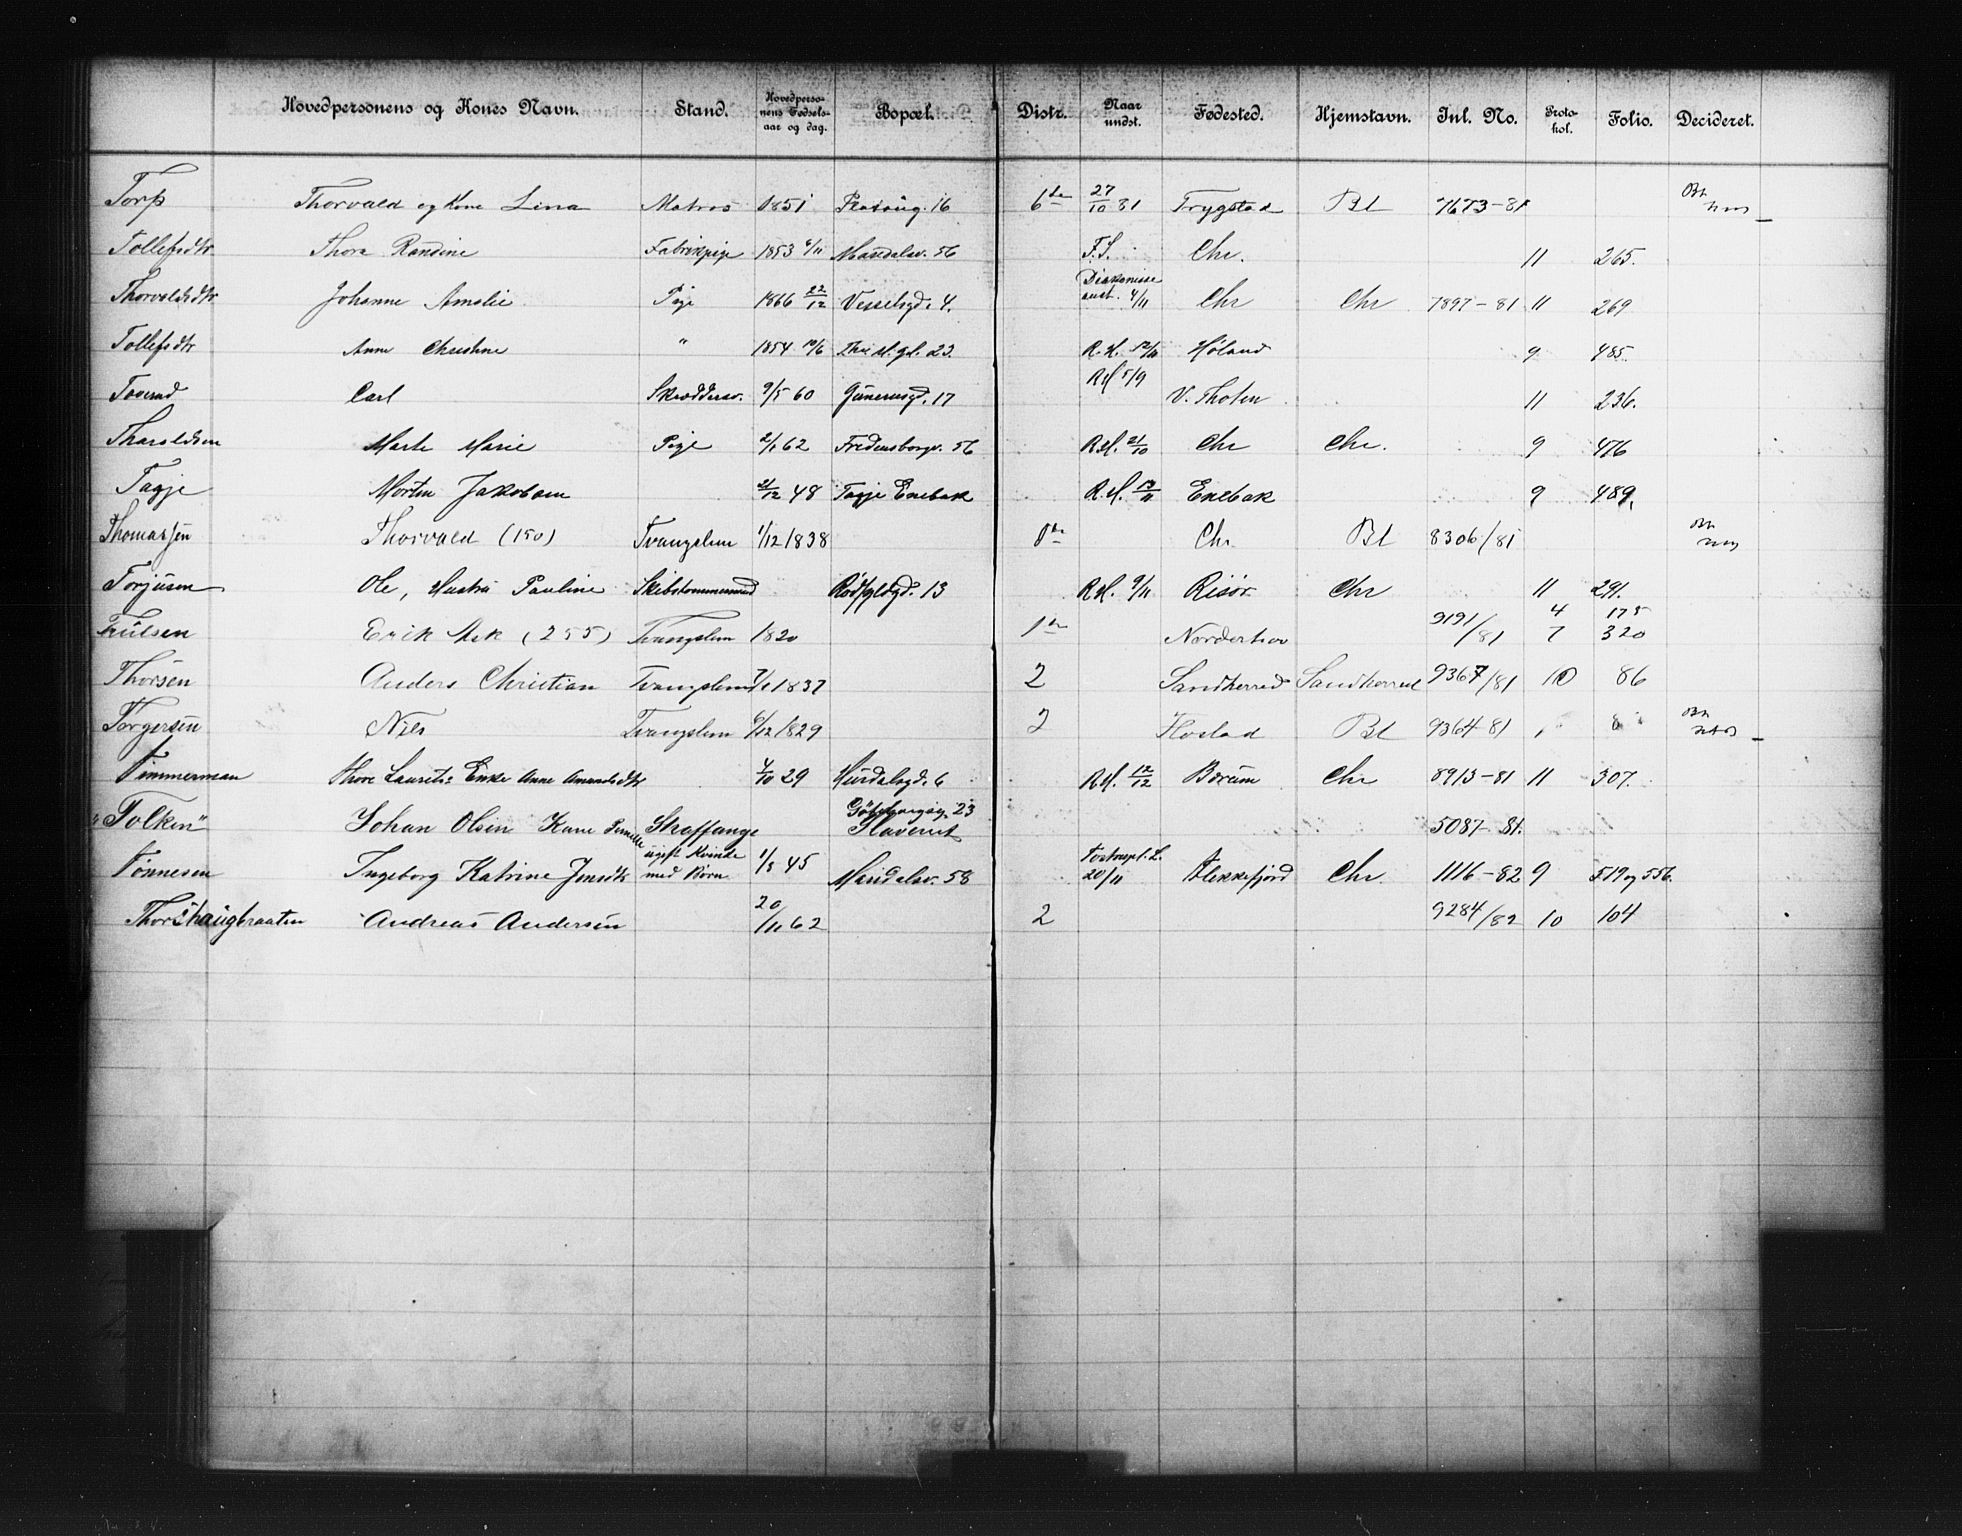 Hovedpersonens og Kones Navn. Stand. Hovedpersonens Fødselsaar og dag. Bopæl. Distr. Naar undst. Fødested. Hjemstavn. Jul. No. Protokol. Folio. Decideret.
Torp Thorvald og Kone Lina Matros 1851 16 6te 27/10 81 Trygstad Bl 7673-81
Tollefsdtr Thora Randine Fabrikpige 1853 Mandalsv. 56 F.S. Chr. 11 265.
Thorvaldsdtr Johanne Amalie Pige 1866 22/12 Vesselsgd. 4. Diakonisse anst. 4/11 Chr Chr 7897-81 11 269
Tollefsdtr Anne Christine " 1854 10/6 23 R.H. 12/11 Høland 9 485.
Carl Skræddersv. 9/5 60 Gunerusgd. 17 R.H 5/9 V. Thoten 11 236.
Tharaldsen Marte Marie Pige 2/1 62 Fredensborgv. 56 R.H. 21/10 Chr Chr. 9 476
Tagje Morten Jakobsen 21/12 48 Tagje Enebak R.H. 17/11 Enebak 9 489.
Thomassen Thorvald (150) Tvangslem 1/12 1838 Chr. Bl 8306/81
Torjusen Ole, Hustru Pauline Skibstømmermd Rødfyldgd. 13 R.H. 9/11 Risør Chr 11 291.
Trulsen Erik Ask (255) Tvangslem 1820 1te Norderhov 9191/81 4 7 175 320
Thorsen Anders Christian Tvangslem 7/1 1837 2 Sandherred Sandherred 9367/81 10 86
Torgersen Nils Tvangslem 6/12 1829 2 Bl 9364-81 8
Timmerman Thore Laurits Enke Anne Amundsdtr 4/10 29 Hurdalsgd. 6 R.H. 12/12 Bærum Chr 8913-81 11 307.
"Tolken" Johan Olsen Kone Pernille Straffange Gøteborgsg. 23 Slaveriet 5087-81.
Tønnesen Ingeborg Katrine Jensdtr ugift Kvinde med Børn 1/8 45 Mandalsv. 58 20/11 Flekkefjord Chr. 1116-82 9 519 og 556.
Thorshaugbraaten Andreas Andersen 20/11 62 2 9284/82 10 104